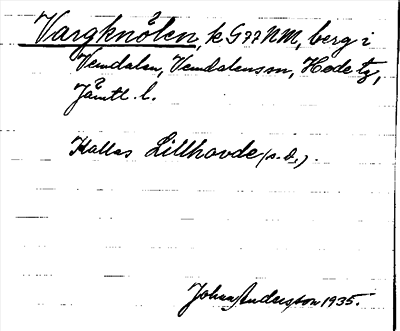 Vargknölen, k G 77 NM, berg i
Vemdalen, Vemdalens sn, Hede tg,
Jämtl. l.
Kallas Lillhovde (s.d.).
Johan Andersson 1935.